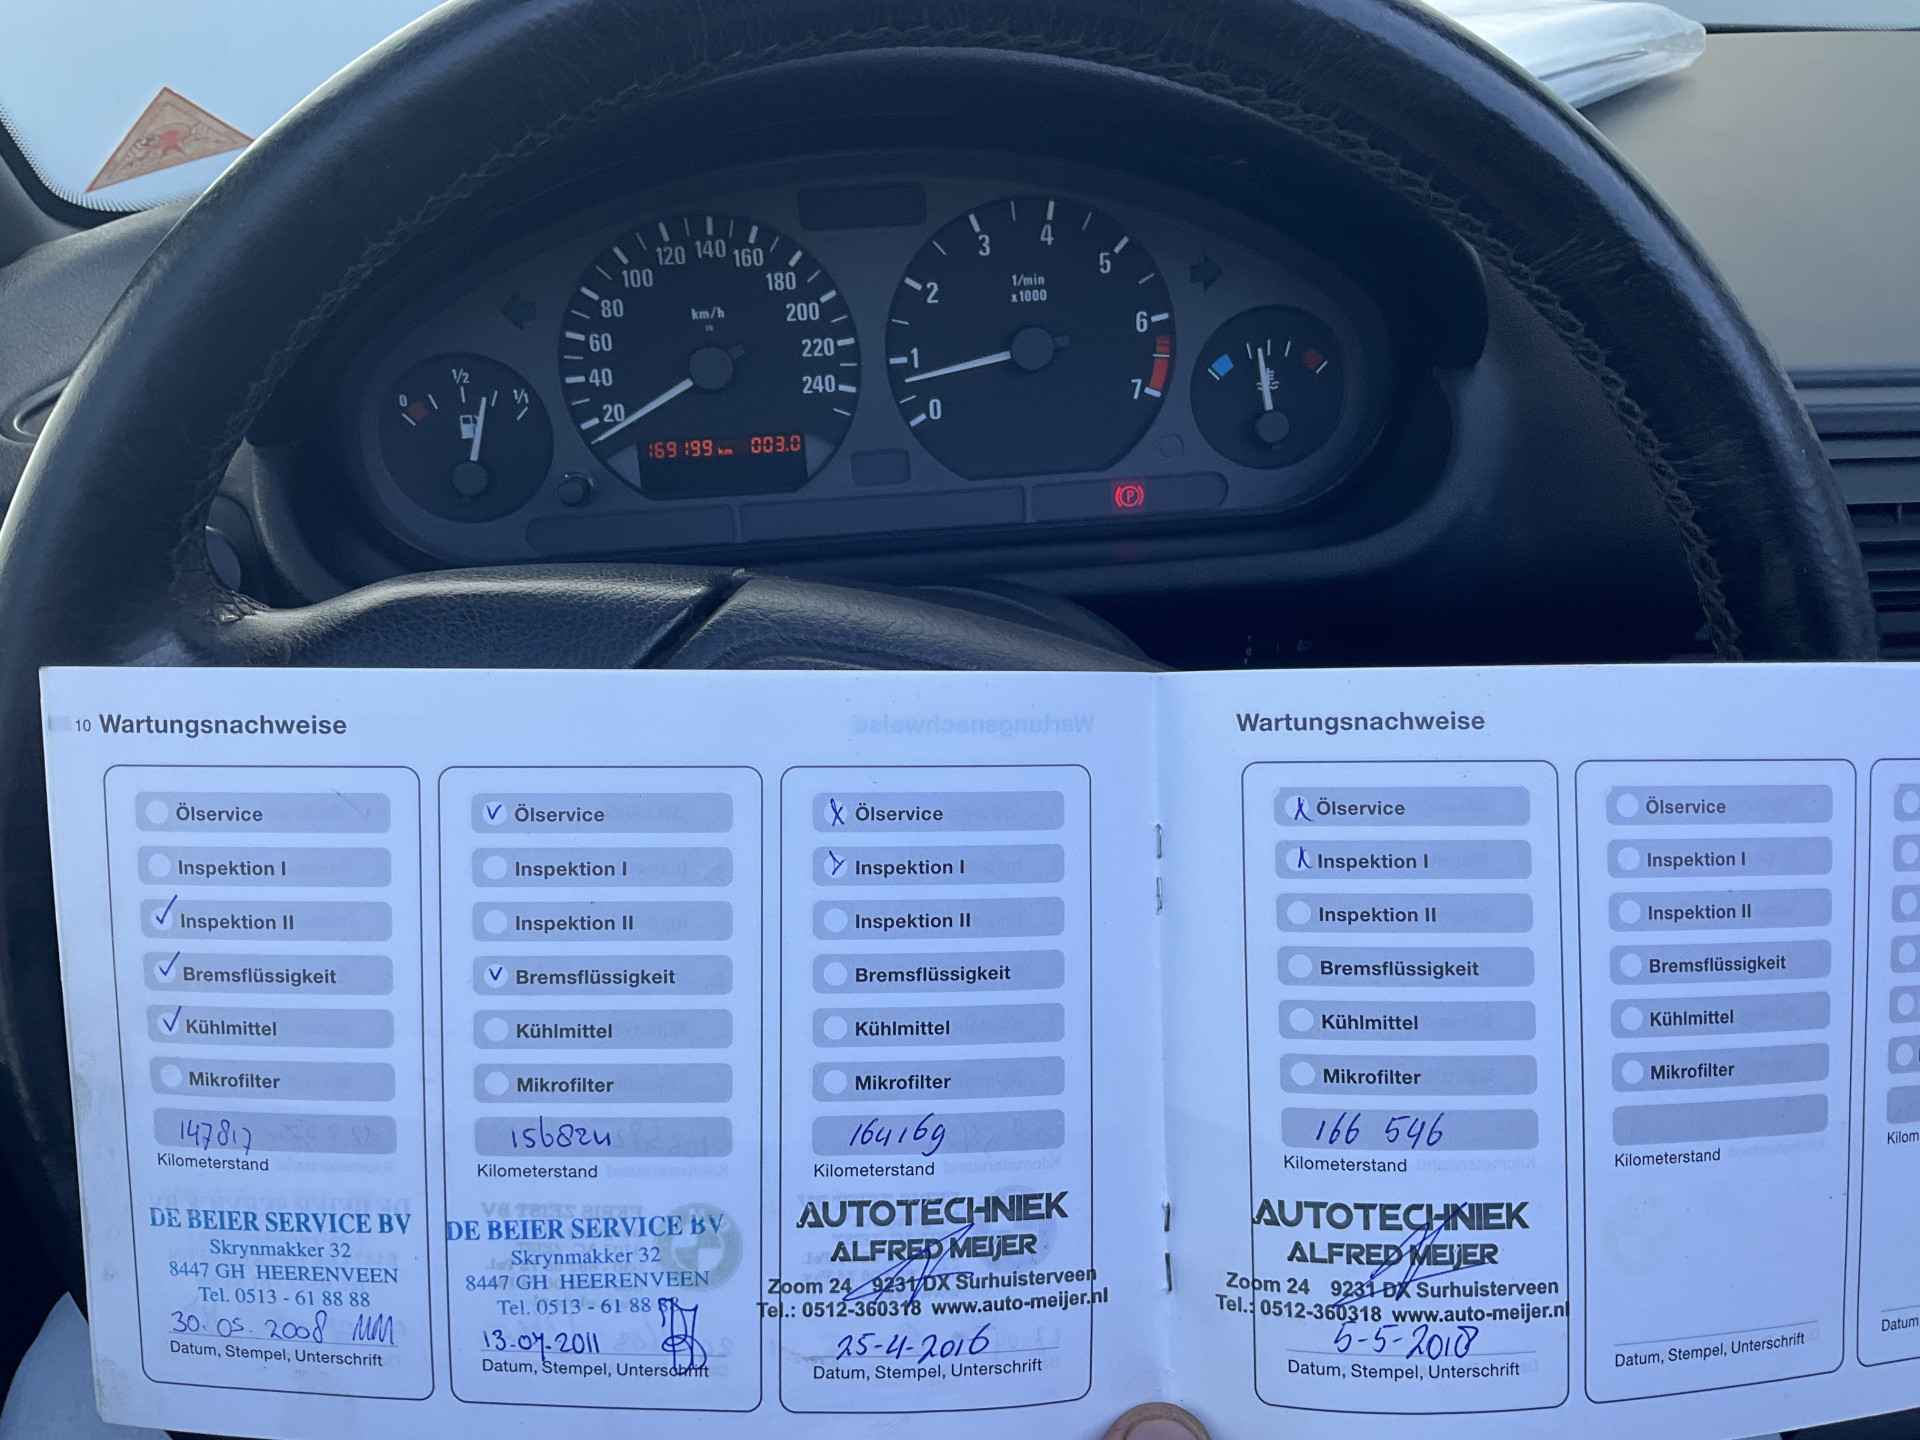 120 140 160
100 180
80 200
60 220
40 240
20
km/h
169199 km 003.0
0 1/2 1/1
1/min
x1000
0 1 2 3 4 5 6 7
10 Wartungsnachweise
Ölservice
Inspektion I
Inspektion II
Bremsflüssigkeit
Kühlmittel
Mikrofilter
147817
Kilometerstand
DE BEIER SERVICE BV
Skrynmakker 32
8447 GH HEERENVEEN
Tel. 0513 - 61 88 88
30.05.2008
Datum, Stempel, Unterschrift
Ölservice
Inspektion I
Inspektion II
Bremsflüssigkeit
Kühlmittel
Mikrofilter
156824
Kilometerstand
DE BEIER SERVICE BV
Skrynmakker 32
8447 GH HEERENVEEN
Tel. 0513 - 61 88 88
13-07-2011
Datum, Stempel, Unterschrift
Ölservice
Inspektion I
Inspektion II
Bremsflüssigkeit
Kühlmittel
Mikrofilter
164169
Kilometerstand
AUTOTECHNIEK
ALFRED MEIJER
Zoom 24 9231 DX Surhuisterveen
Tel.: 0512-360318 www.auto-meijer.nl
25-4-2016
Datum, Stempel, Unterschrift
Wartungsnachweise
Ölservice
Inspektion I
Inspektion II
Bremsflüssigkeit
Kühlmittel
Mikrofilter
166 546
Kilometerstand
AUTOTECHNIEK
ALFRED MEIJER
Zoom 24 9231 DX Surhuisterveen
Tel.: 0512-360318 www.auto-meijer.nl
5-5-2018
Datum, Stempel, Unterschrift
Ölservice
Inspektion I
Inspektion II
Bremsflüssigkeit
Kühlmittel
Mikrofilter
Kilometerstand
Datum, Stempel, Unterschrift
Kilom
Datum